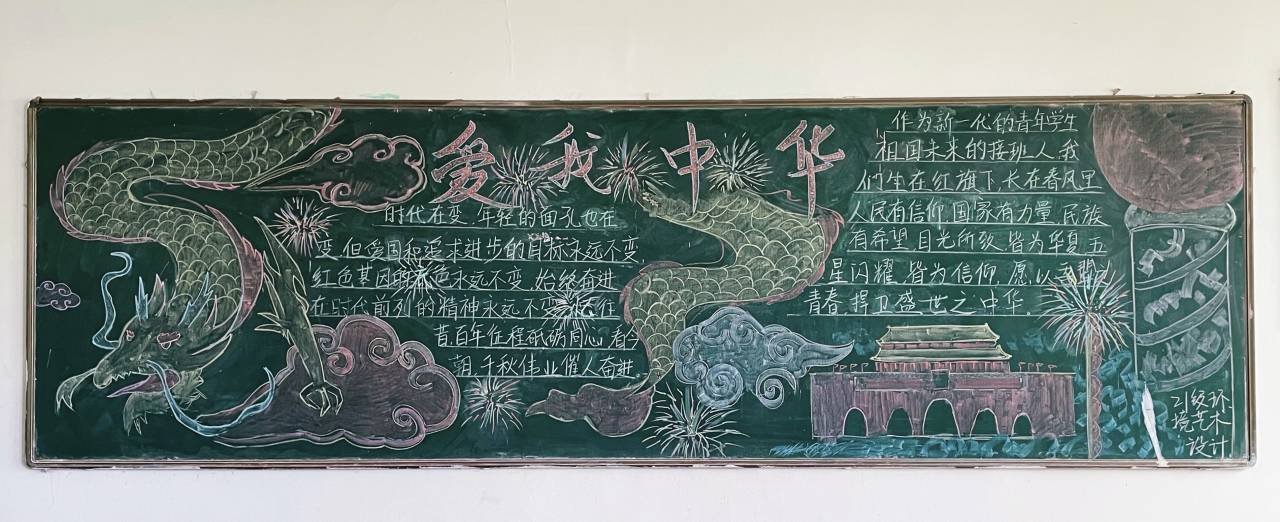 爱我中华
时代在变,年轻的面孔也在
变,但爱国和爱求进步的目标永远不变,
红色基因的 色永远不变,始终奋进
在时代前列的精神永远不变, 往
昔,百年征程砥砺同心,看今
朝,千秋伟业催人奋进
作为新一代的青年学生
祖国未来的接班人,我
们生在红旗下,长在春风里
人民有信仰,国家有力量,民族
有希望,目光所致,皆为华夏,五
星闪耀,皆为信仰,愿以吾辈
青春,捍卫盛世之中华.
21级环
境艺术
设计